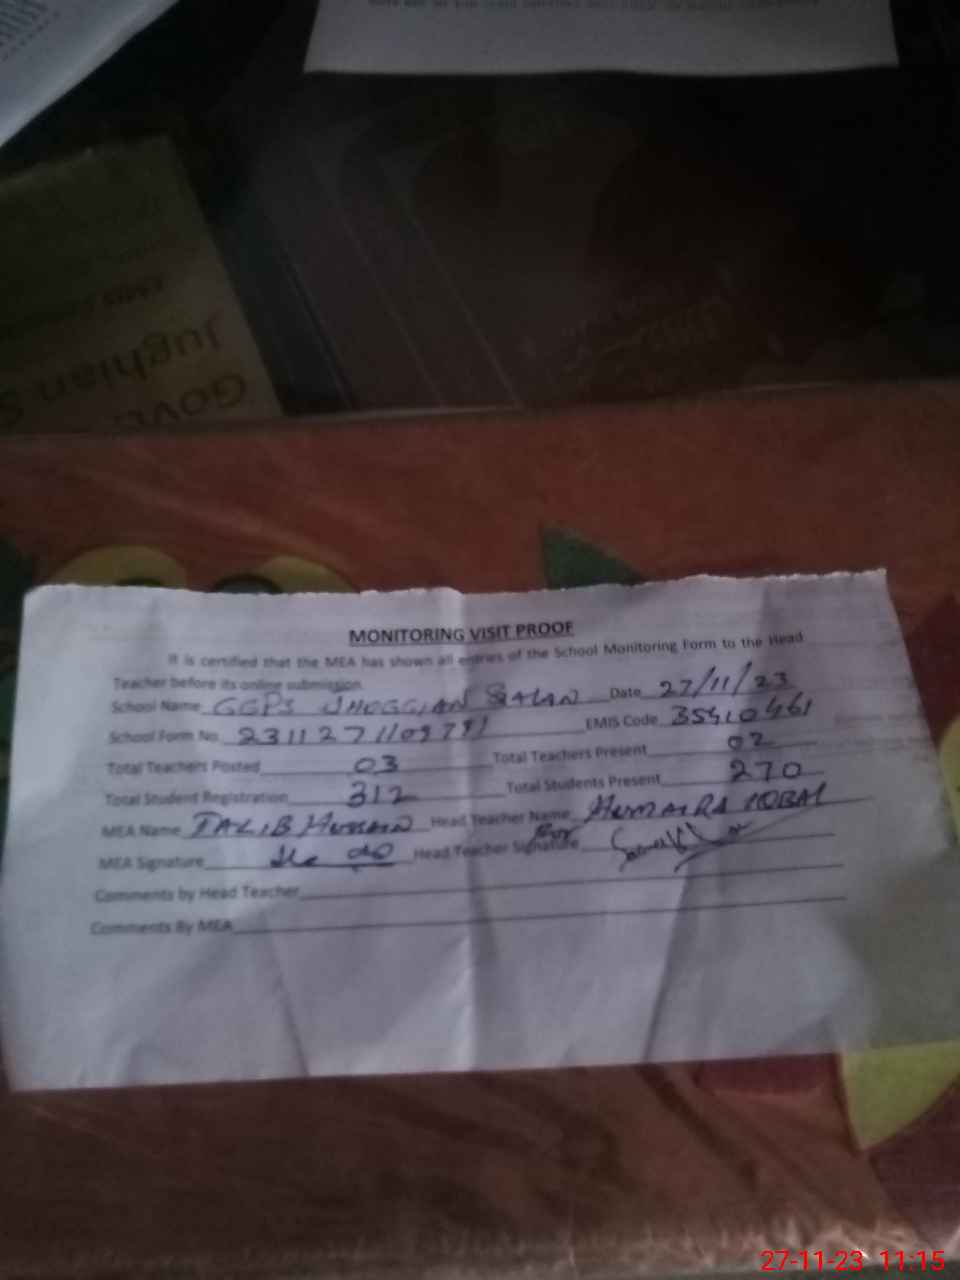 GOVT.
Jughian S
MONITORING VISIT PROOF
It is certified that the MEA has shown all entries of the School Monitoring Form to the Head
Teacher before its online submission
School Name GGPS JHOGGIAN Date 27/11/23
School Form No. EMIS Code 35410461
Total Teachers Posted 03 Total Teachers Present 02
Total Student Registration 312 Total Students Present 270
MEA Name TALIB HUSSAIN Head Teacher Name HUMAIRA IQBAL
MEA Signature Head Teacher Signature
Comments by Head Teacher
Comments By MEA
27-11-23 11:15